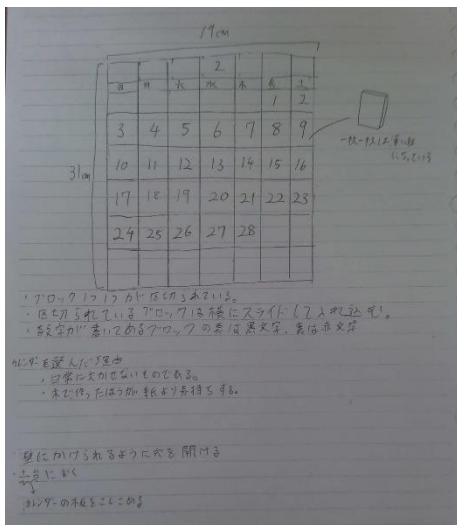 19cm
2
日 月 火 水 木 金 土
1 2
3 4 5 6 7 8 9
10 11 12 13 14 15 16
31cm
17 18 19 20 21 22 23
24 25 26 27 28
一枚一枚は
になっている
・ブロック1つ1つが区切られている。
・区切られているブロックは横にスライドして入れ込む。
・数字が書いてあるブロックの表は黒文字、裏は赤文字
カレンダーを選んだ理由
・日常に欠かせないものである。
・木で作ったほうが紙より長持ちする。
壁にかけられるように穴を開ける
・土台におく
カレンダーの板をはめこめる